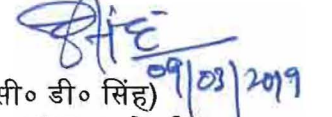 सिंह
09/03/2019
सी० डी० सिंह)